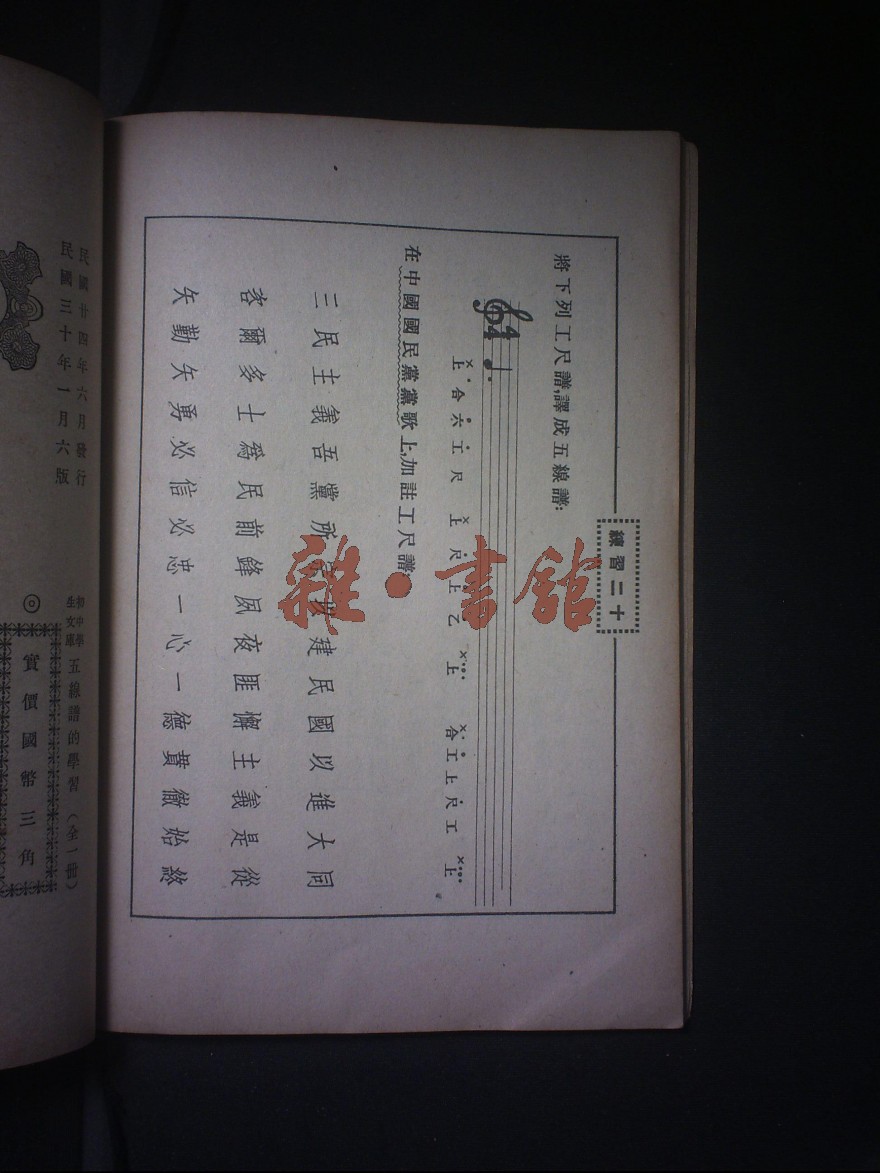 練習二十
將下列工尺譜，譯成五線譜：
4
4
上合六工尺 上尺上乙 上 合工上尺工 上
在中國國民黨黨歌上，加註工尺譜。
三民主義吾黨所宗以建民國以進大同
咨爾多士爲民前鋒夙夜匪懈主義是從
矢勤矢勇必信必忠一心一德貫徹始終
民國廿四年六月發行
民國三十年一月六版
初中學生文庫
五線譜的學習（全一冊）
◎
實價國幣三角
雜·書館